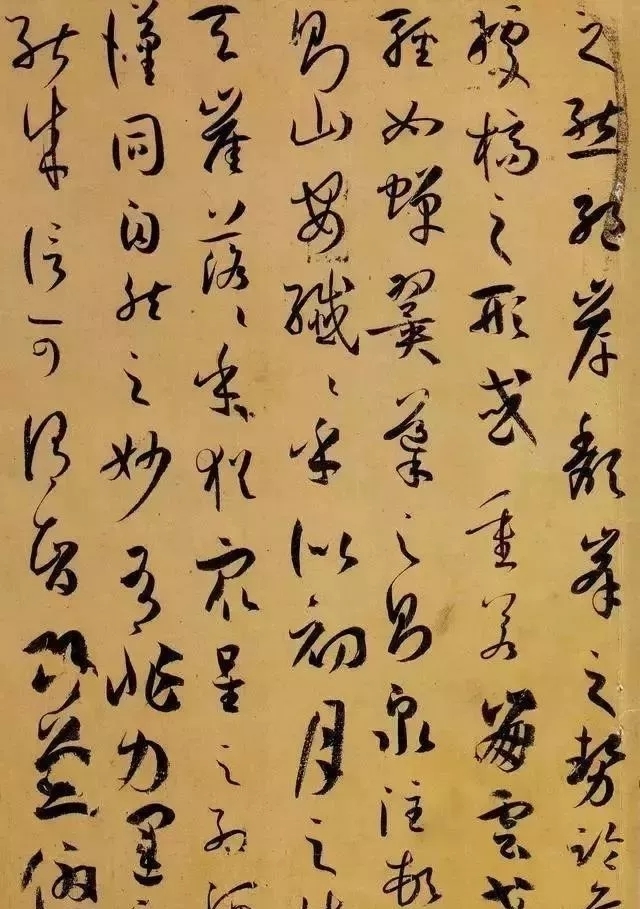 之態絕岸頹峯之勢臨危
據槁之形或重若崩雲或
輕如蟬翼導之則泉注頓
則山安纖〻乎似初月之出
天崖落〻乎猶衆星之列河
漢同自然之妙有非力運之
能成信可謂智巧兼優